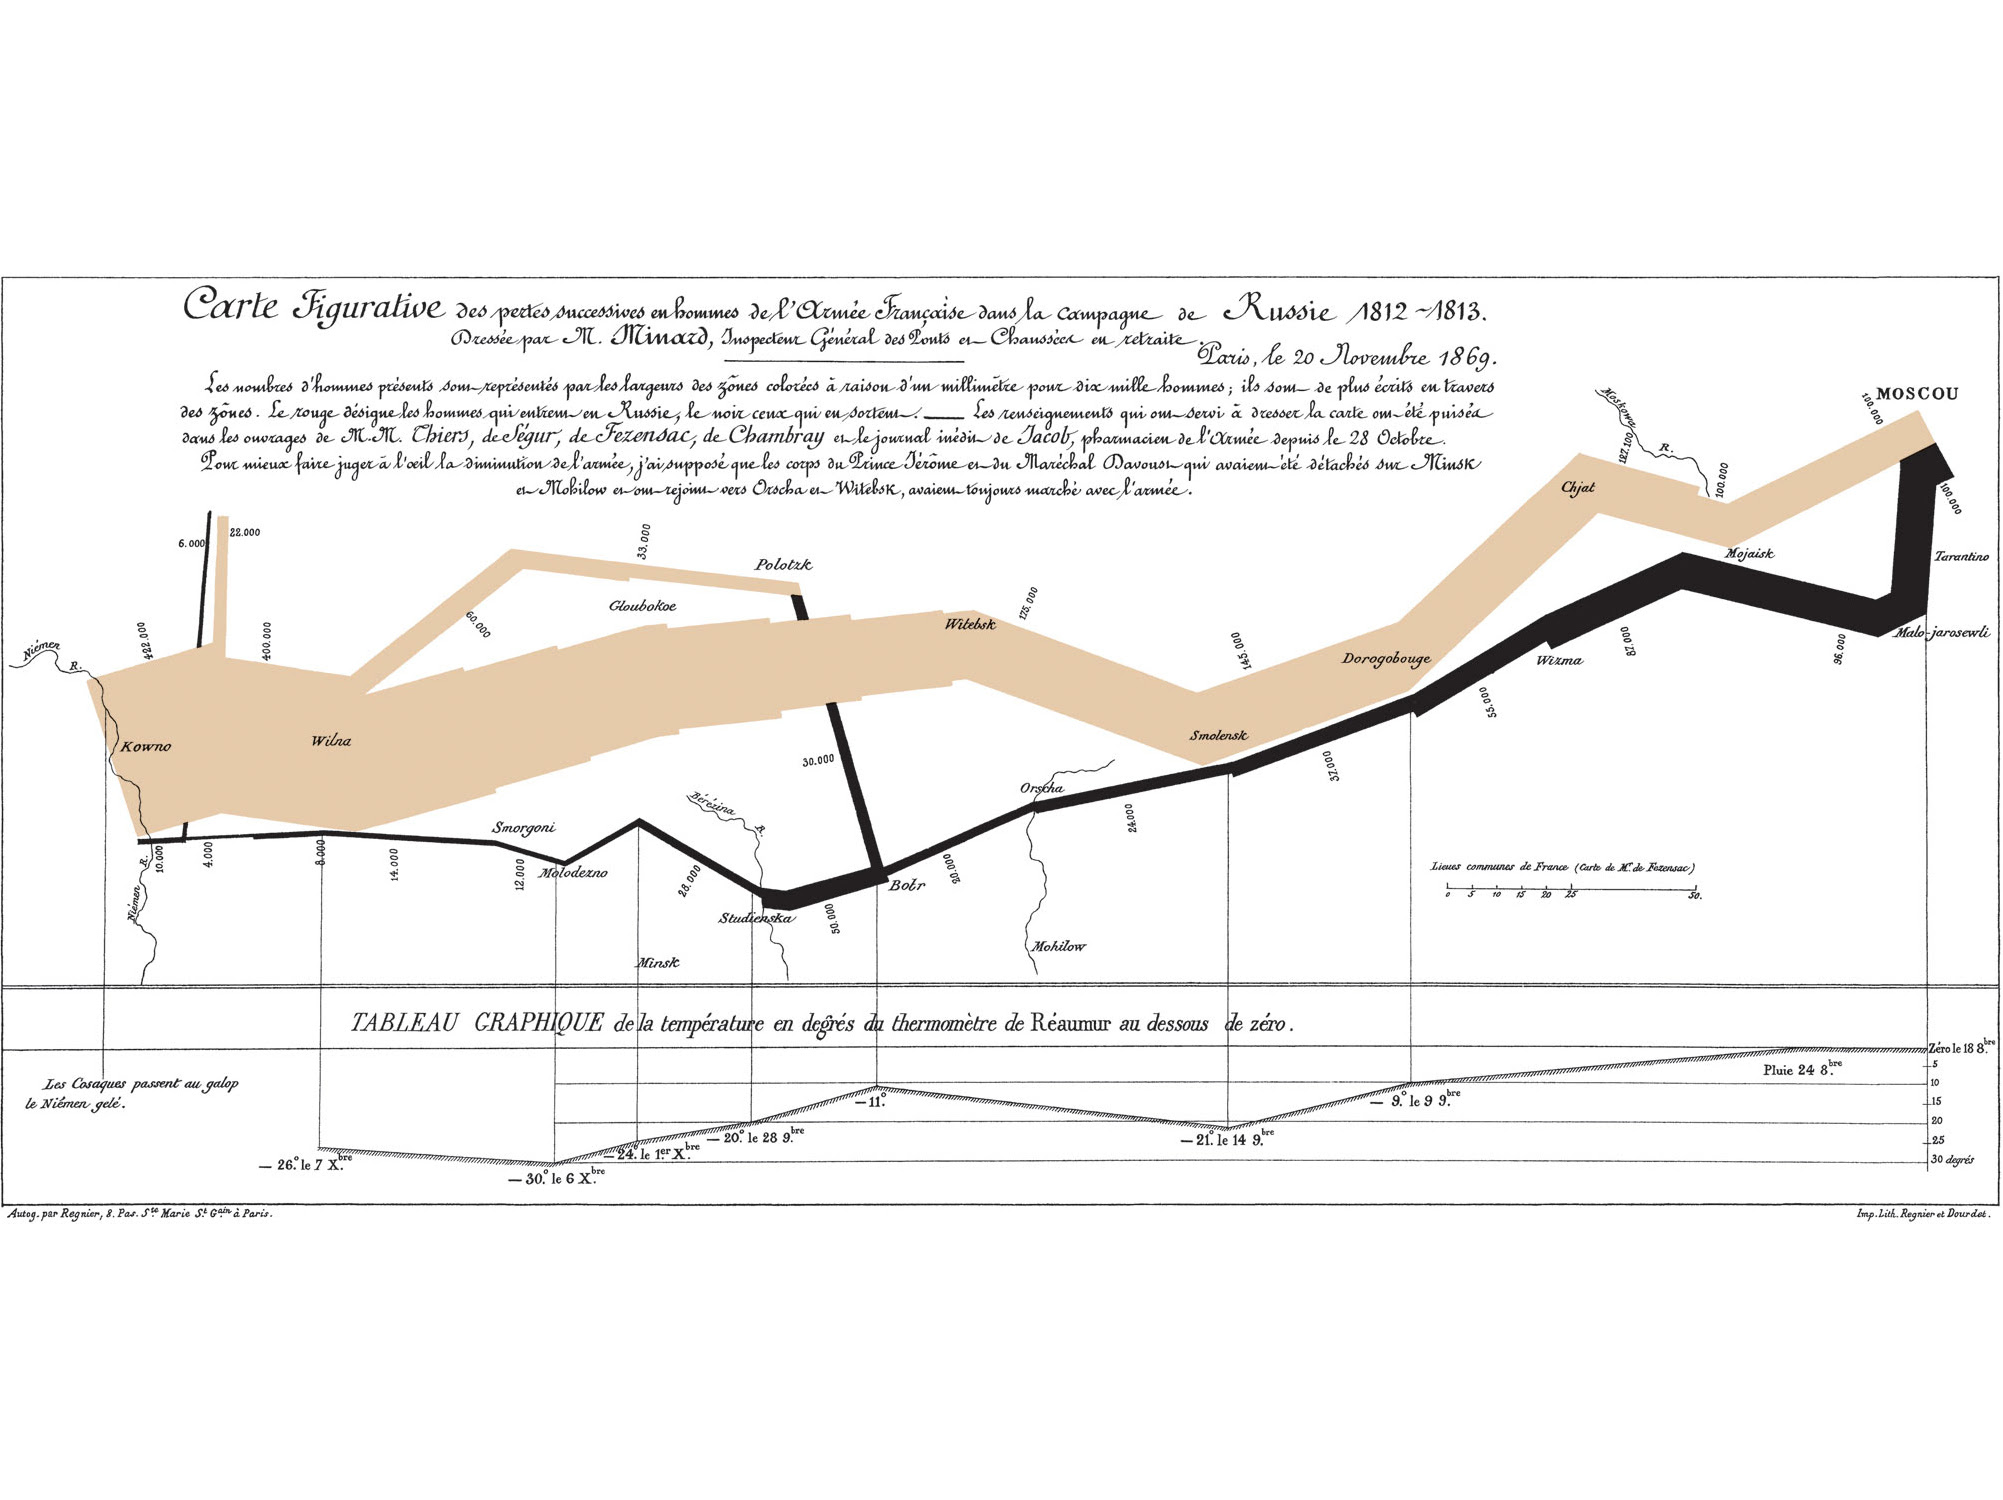 Carte Figurative des pertes successives en hommes de l'Armée Française dans la campagne de Russie 1812~1813.
Dressée par M. Minard, Inspecteur Général des Ponts et Chaussées en retraite.
Paris, le 20 Novembre 1869.
Les nombres d'hommes présents sont représentés par les largeurs des zônes colorées à raison d'un millimètre pour dix mille hommes; ils sont de plus écrits en travers
des zônes. Le rouge désigne les hommes qui entrent en Russie, le noir ceux qui en sortent. — Les renseignements qui ont servi à dresser la carte ont été puisés
dans les ouvrages de M.M. Thiers, de Ségur, de Fezensac, de Chambray et le journal inédit de Jacob, pharmacien de l'Armée depuis le 28 Octobre.
Pour mieux faire juger à l'œil la diminution de l'armée, j'ai supposé que les corps du Prince Jérôme et du Maréchal Davoust qui avaient été détachés sur Minsk
et Mohilow et ont rejoint vers Orscha et Witebsk, avaient toujours marché avec l'armée.
MOSCOU
100.000
Moskowa R.
127.100
100.000
Chjat
Mojaisk
100.000
Tarantino
Malo-jarosewli
6.000
22.000
33.000
Polotzk
Gloubokoe
60.000
Niémen R.
422.000
400.000
Kowno
Wilna
Witebsk
175.000
145.000
Dorogobouge
Smolensk
Wizma
87.000
96.000
55.000
32.000
30.000
Orscha
24.000
Bérézina R.
Smorgoni
Molodezno
10.000
4.000
8.000
14.000
12.000
28.000
Studienska
50.000
Bobr
20.000
Niémen R.
Minsk
Mohilow
Lieues communes de France (Carte de M.r de Fezensac)
0 5 10 15 20 25 50.
TABLEAU GRAPHIQUE de la température en degrés du thermomètre de Réaumur au dessous de zéro.
Les Cosaques passent au galop
le Niémen gelé.
Zéro le 18 8.bre
5
10
15
20
25
30 degrés
Pluie 24 8.bre
— 9.° le 9 9.bre
— 21.° le 14 9.bre
— 11.°
— 20.° le 28 9.bre
— 24.° le 1.er X.bre
— 30.° le 6 X.bre
— 26.° le 7 X.bre
Autog. par Regnier, 8. Pas. S.te Marie S.t G.ain à Paris.
Imp. Lith. Regnier et Dourdet.